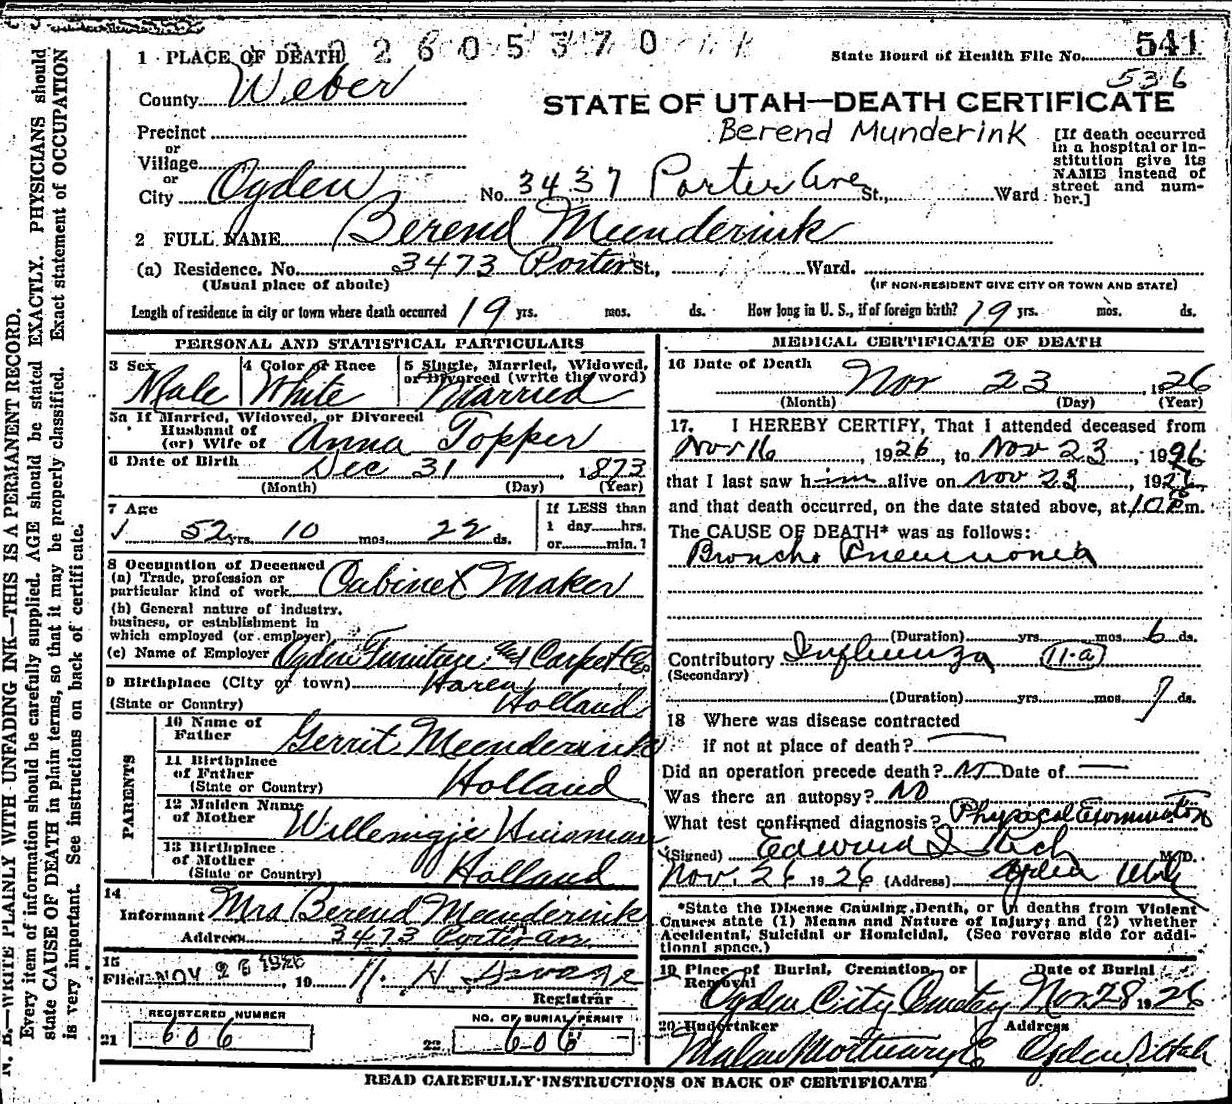 2605370
State Board of Health File No. 541
536
1 PLACE OF DEATH
County Weber
STATE OF UTAH—DEATH CERTIFICATE
Berend Munderink
Precinct
or
Village
or
City Ogden No. 3437 Porter Ave St., Ward
[If death occurred
in a hospital or in-
stitution give its
NAME instead of
street and num-
ber.]
2 FULL NAME Berend Meenderink
(a) Residence. No. 3473 Porter St., Ward.
(Usual place of abode) (IF NON-RESIDENT GIVE CITY OR TOWN AND STATE)
Length of residence in city or town where death occurred 19 yrs. mos. ds. How long in U. S., if of foreign birth? 19 yrs. mos. ds.
PERSONAL AND STATISTICAL PARTICULARS
3 Sex Male
4 Color or Race White
5 Single, Married, Widowed,
or Divorced (write the word)
Married
5a If Married, Widowed, or Divorced
Husband of
(or) Wife of Anna Topper
6 Date of Birth Dec 31, 1873
(Month) (Day) (Year)
7 Age
52 yrs. 10 mos. 22 ds.
If LESS than
1 day hrs.
or min.?
8 Occupation of Deceased
(a) Trade, profession or
particular kind of work Cabinet Maker
(b) General nature of industry,
business, or establishment in
which employed (or employer)
(c) Name of Employer Ogden Furniture and Carpet Co
9 Birthplace (City or town) Haren
(State or Country) Holland
PARENTS
10 Name of
Father Gerrit Meenderink
11 Birthplace
of Father
(State or Country) Holland
12 Maiden Name
of Mother Willemigje Huisman
13 Birthplace
of Mother
(State or Country) Holland
14
Informant Mrs Berend Meenderink
Address 3473 Porter av.
15
Filed NOV 26 1926, 19 Savage
Registrar
REGISTERED NUMBER
21 606
NO. OF BURIAL PERMIT
22 606
MEDICAL CERTIFICATE OF DEATH
16 Date of Death
Nov 23 1926
(Month) (Day) (Year)
17. I HEREBY CERTIFY, That I attended deceased from
Nov 16, 1926, to Nov 23, 1926
that I last saw him alive on Nov 23, 1926
and that death occurred, on the date stated above, at 10 P.m.
The CAUSE OF DEATH* was as follows:
Broncho Pneumonia
(Duration) yrs. mos. 6 ds.
Contributory Influenza 11-a
(Secondary)
(Duration) yrs. mos. 7 ds.
18 Where was disease contracted
If not at place of death?
Did an operation precede death? No Date of
Was there an autopsy? No
What test confirmed diagnosis? Physical Examination
(Signed) Edward I Rich M.D.
Nov. 26 1926 (Address) Ogden Utah
*State the Disease Causing Death, or in deaths from Violent
Causes state (1) Means and Nature of Injury; and (2) whether
Accidental, Suicidal or Homicidal. (See reverse side for addi-
tional space.)
19 Place of Burial, Cremation, or Removal Date of Burial
Ogden City Cemetery Nov. 28 1926
20 Undertaker Address
Malan Mortuary Co Ogden Utah
READ CAREFULLY INSTRUCTIONS ON BACK OF CERTIFICATE
N. B.—WRITE PLAINLY WITH UNFADING INK—THIS IS A PERMANENT RECORD.
Every item of information should be carefully supplied. AGE should be stated EXACTLY. PHYSICIANS should
state CAUSE OF DEATH in plain terms, so that it may be properly classified. Exact statement of OCCUPATION
is very important. See instructions on back of certificate.